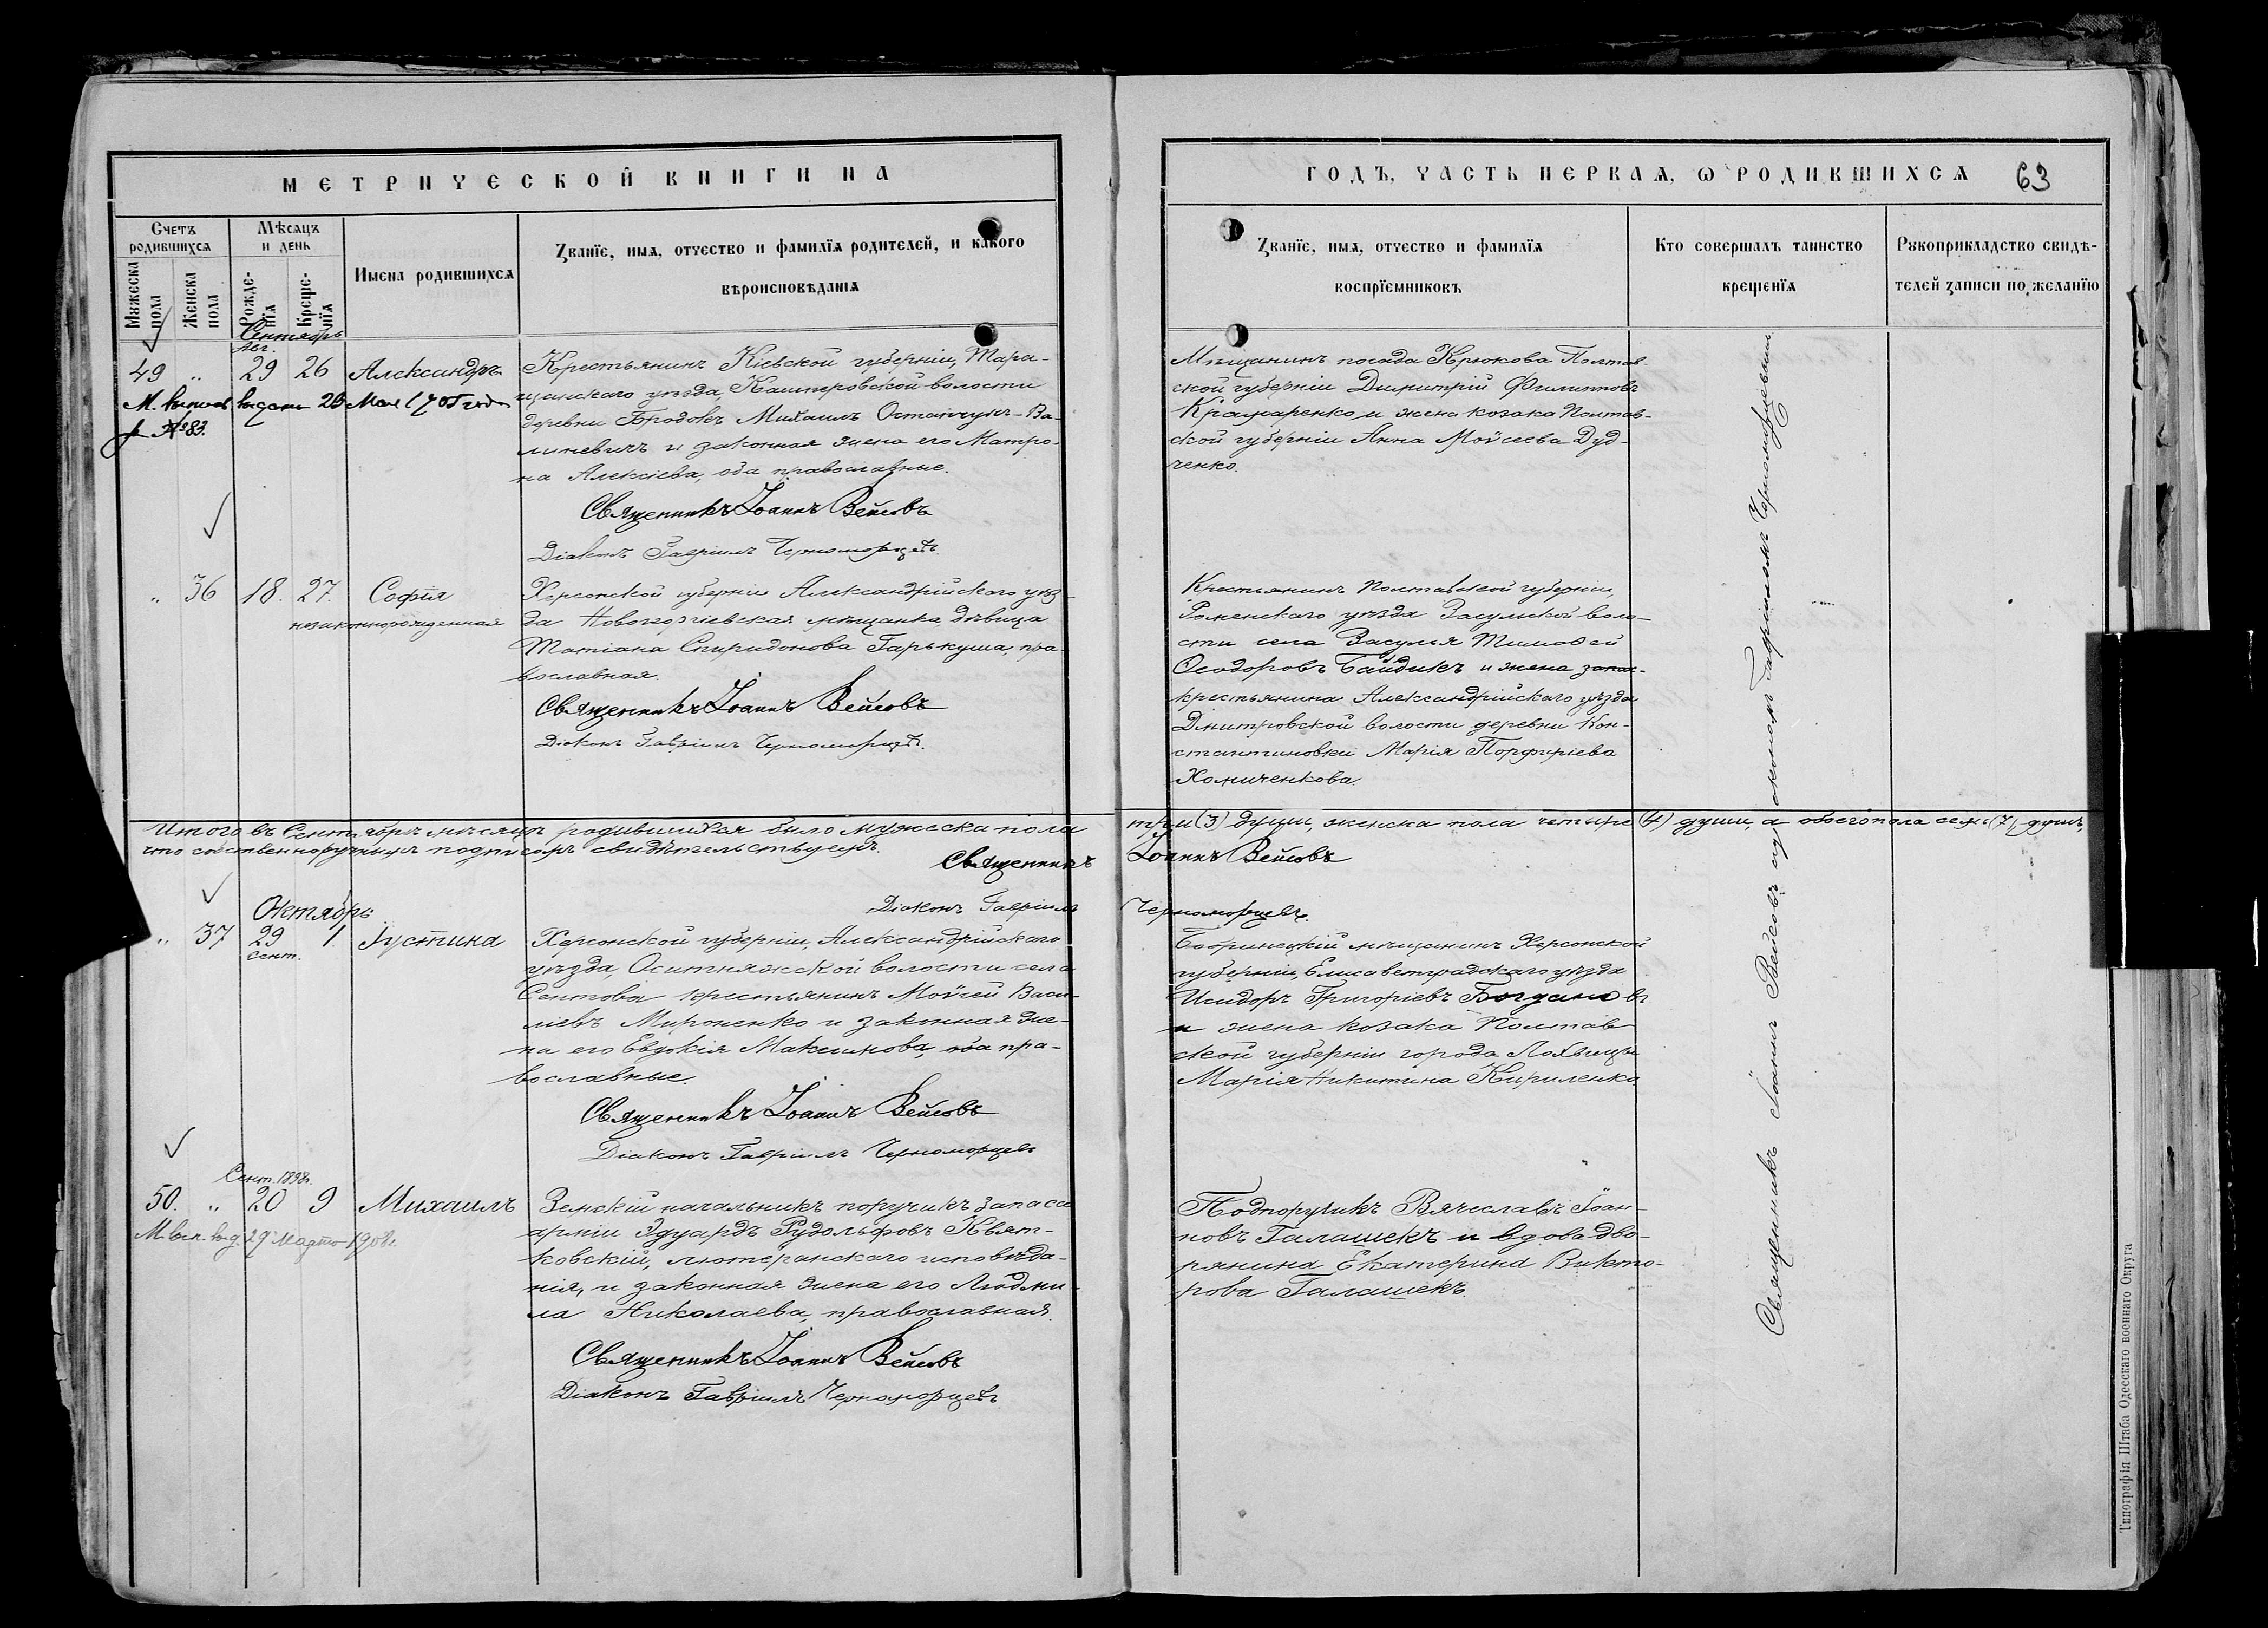 МЕТРИЧЕСКОЙ КНИГИ НА
ГОДЪ, ЧАСТЬ ПЕРВАЯ, Ѡ РОДИВШИХСЯ
63
Счетъ родившихся
Мѣсяцъ и день
Мужеска пола
Женска пола
Рожденїя
Крещенїя
Имена родившихся
Званїе, имя, отчество и фамилїя родителей, и какого
вѣроисповѣданїя
Званїе, имя, отчество и фамилїя
воспрїемниковъ
Кто совершалъ таинство
крещенїя
Рукоприкладство свидѣ-
телей записи по желанїю
Сентябрь
Авг.
49 " 29 26 Александръ
23 Мая
№ 83.
Крестьянинъ Кіевской губерніи, Тара-
щанскаго уѣзда, Кашперовской волости
деревни Бродокъ Михаилъ Остапчукъ-Ва-
линевичъ и законная жена его Матро-
на Алексіева, оба православные.
Священникъ Іоаннъ Вейсовъ
Діаконъ Гавріилъ Черноморцевъ.
Мѣщанинъ посада Крюкова Полтав-
ской губерніи Димитрій Филипповъ
Крамаренко и жена козака Полтав-
ской губерніи Анна Моѵсеева Дуд-
ченко.
" 36 18. 27. Софія
незаконнорожденная
Херсонской губерніи Александрійскаго уѣз-
да Новогеоргіевская мѣщанка дѣвица
Татіана Спиридонова Гарькуша, пра-
вославная.
Священникъ Іоаннъ Вейсовъ
Діаконъ Гавріилъ Черноморцевъ.
Крестьянинъ Полтавской губерніи,
Роменскаго уѣзда Засульской воло-
сти села Засулья Тимоѳей
Ѳеодоровъ Байдикъ и жена запас-
крестьянина Александрійскаго уѣзда
Дмитровской волости деревни Кон-
стантиновки Марія Порфиріева
Хомиченкова.
Итого въ Сентябрѣ мѣсяцѣ родившихся было мужеска пола три (3) души, женска пола четыре (4) души, а обоего пола семь (7) душъ,
что собственноручнымъ подписомъ свидѣтельствуемъ.
Священникъ Іоаннъ Вейсовъ
Діаконъ Гавріилъ Черноморцевъ.
Октябрь
" 37 29 1. Іустина
Сент.
Херсонской губерніи, Александрійскаго
уѣзда, Оситняжской волости села
Сентова крестьянинъ Моѵсей Васи-
ліевъ Мироненко и законная же-
на его Евдокія Максимова, оба пра-
вославные.
Священникъ Іоаннъ Вейсовъ
Діаконъ Гавріилъ Черноморцевъ
Бобринецкій мѣщанинъ Херсонской
губерніи, Елисаветградскаго уѣзда
Исидоръ Григоріевъ Богдановъ
и жена козака Полтав-
ской губерніи города Лохвицы
Марія Никитина Кириленко
Сент. 1898г.
50. " 20 9 Михаилъ
М. вып. выд. 29 марта 1908г.
Земскій начальникъ поручикъ запаса
арміи Эдуардъ Рудольфовъ Квят-
ковскій, лютеранскаго исповѣда-
нія, и законная жена его Людми-
ла Николаева, православная.
Священникъ Іоаннъ Вейсовъ
Діаконъ Гавріилъ Черноморцевъ
Подпоручикъ Вячеславъ Іоан-
новъ Галашекъ и вдова дво-
рянина Екатерина Викто-
рова Галашекъ.
Священникъ Іоаннъ Вейсовъ съ діакономъ Гавріиломъ Черноморцевымъ
Типографія Штаба Одесскаго военнаго Округа